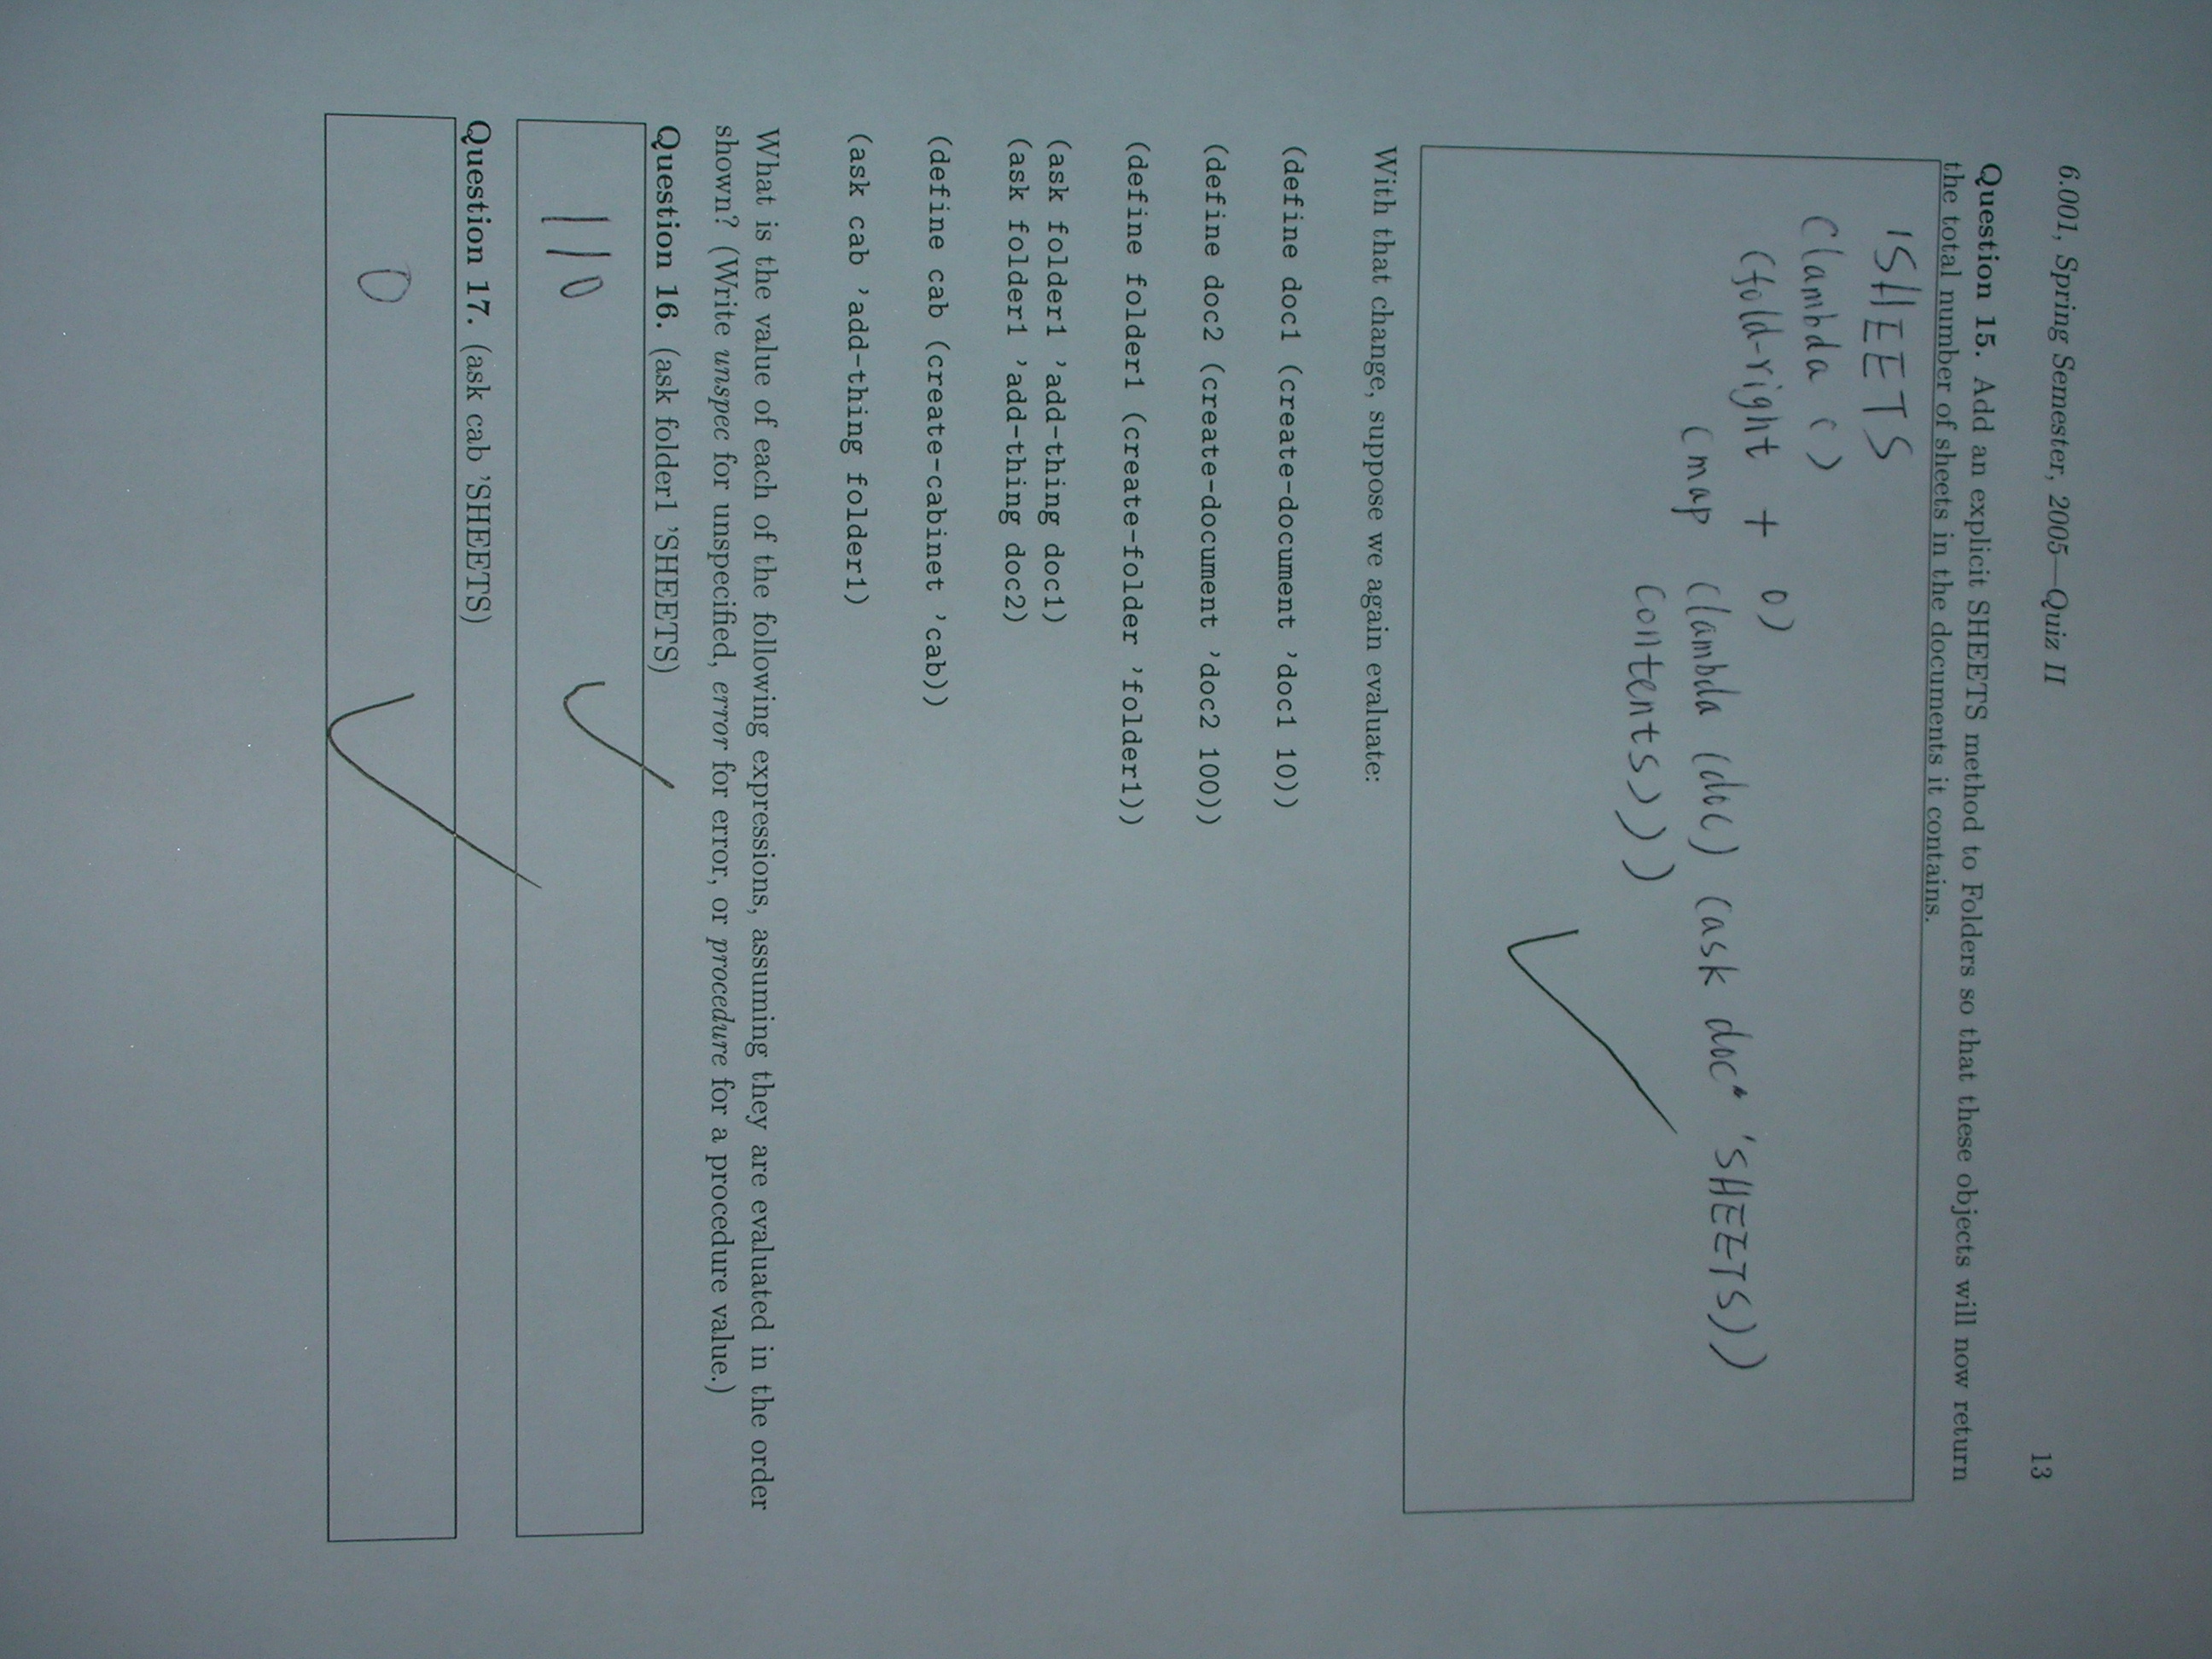 6.001, Spring Semester, 2005—Quiz II 13
Question 15. Add an explicit SHEETS method to Folders so that these objects will now return
the total number of sheets in the documents it contains.
'SHEETS
(lambda ()
(fold-right + 0)
(map (lambda (doc) (ask doc 'SHEETS))
contents)))
With that change, suppose we again evaluate:
(define doc1 (create-document 'doc1 10))
(define doc2 (create-document 'doc2 100))
(define folder1 (create-folder 'folder1))
(ask folder1 'add-thing doc1)
(ask folder1 'add-thing doc2)
(define cab (create-cabinet 'cab))
(ask cab 'add-thing folder1)
What is the value of each of the following expressions, assuming they are evaluated in the order
shown? (Write unspec for unspecified, error for error, or procedure for a procedure value.)
Question 16. (ask folder1 'SHEETS)
110
Question 17. (ask cab 'SHEETS)
0